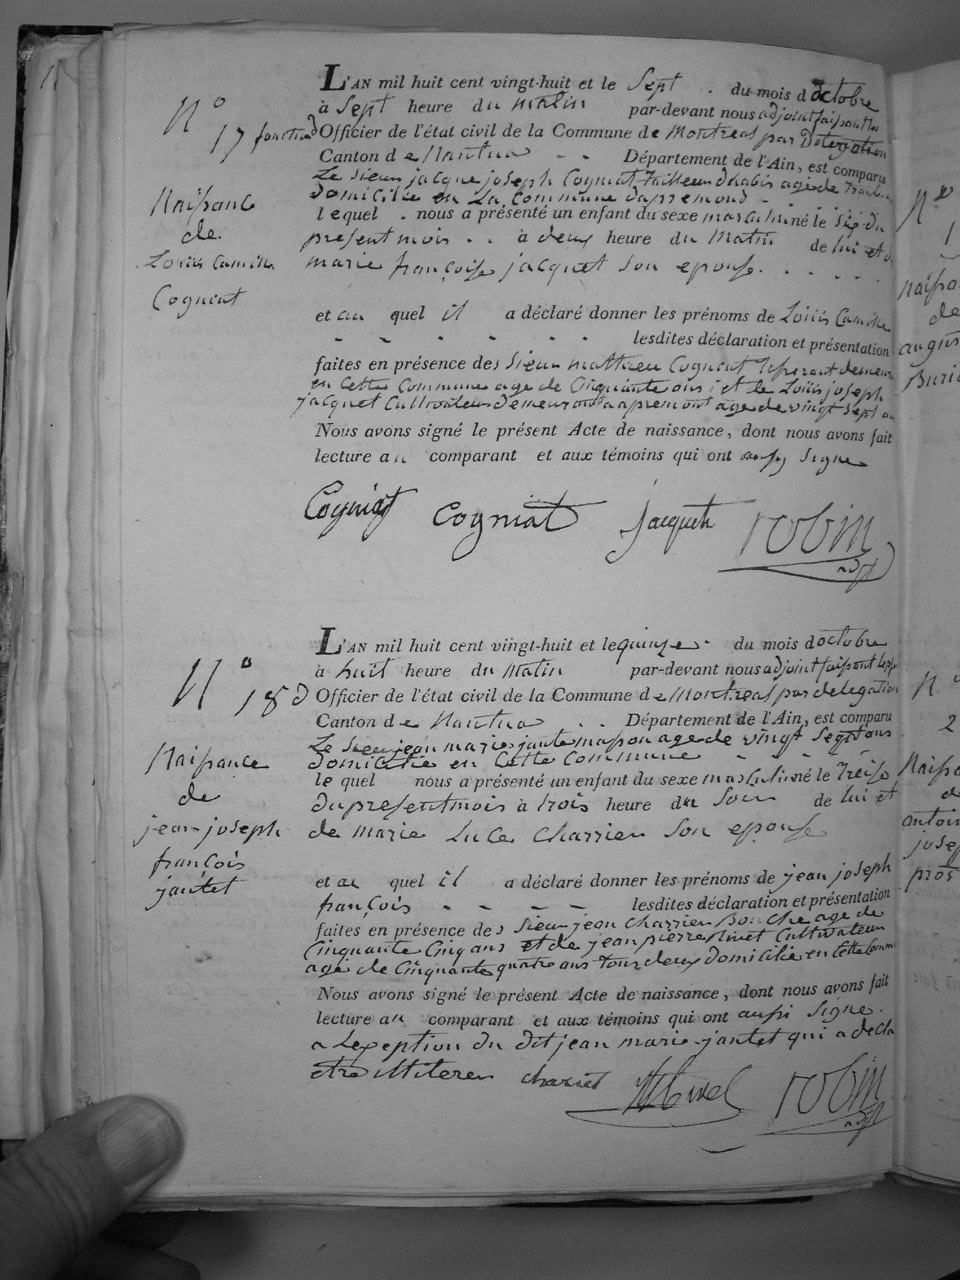 N° 17
Naissance
de
Louis Camille
Cogniat
L'AN mil huit cent vingt-huit et le Sept . du mois d'octobre
à Sept heure du matin par-devant nous adjoint faisant les
fonction d'Officier de l'état civil de la Commune de Montreal par Delegation
Canton de Nantua - - Département de l'Ain, est comparu
Le Sieur jacque joseph Cogniat tailleur d'habis age de
domicilie en La Commune d'apremond - - -
lequel . nous a présenté un enfant du sexe masculin né le Six du
present mois . . à deux heure du Matin de lui et d
marie françoise jacquet son epouse. . . . .
et au quel il a déclaré donner les prénoms de Louis Camille
- - - - - - lesdites déclaration et présentation
faites en présence des Sieur mathieu Cogniat
en cette Commune age de Cinquante ans et le Louis joseph
jacquet Cultivateur demeurant a apremont age de vingt Sept an
Nous avons signé le présent Acte de naissance, dont nous avons fait
lecture au comparant et aux témoins qui ont aussy Signe
Cogniat cogniat jacquet robin
adjt
N° 18
Naissance
de
jean joseph
françois
jantet
L'AN mil huit cent vingt-huit et le quinze - du mois d'octobre
à huit heure du Matin par-devant nous adjoint faisant les
d'Officier de l'état civil de la Commune de Montreal par delegation
Canton de Nantua . . Département de l'Ain, est comparu
Le Sieur jean marie jantet masson age de vingt Sept ans
domicilie en Cette Commune - - -
le quel nous a présenté un enfant du sexe masculin né le Treise
du present mois à trois heure du Soir de lui et
de marie Luce Charrier Son epouse
et au quel il a déclaré donner les prénoms de jean joseph
françois - - - - lesdites déclaration et présentation
faites en présence des Sieur jean Charrier age de
Cinquante Cinq ans et de jean pierre Nivet Cultivateur
age de Cinquante quatre ans tour deux domicilie en Cette Comm
Nous avons signé le présent Acte de naissance, dont nous avons fait
lecture au comparant et aux témoins qui ont aussi Signe.
a Lexeption du dit jean marie jantet qui a decla
etre illiteré
robin
adjt